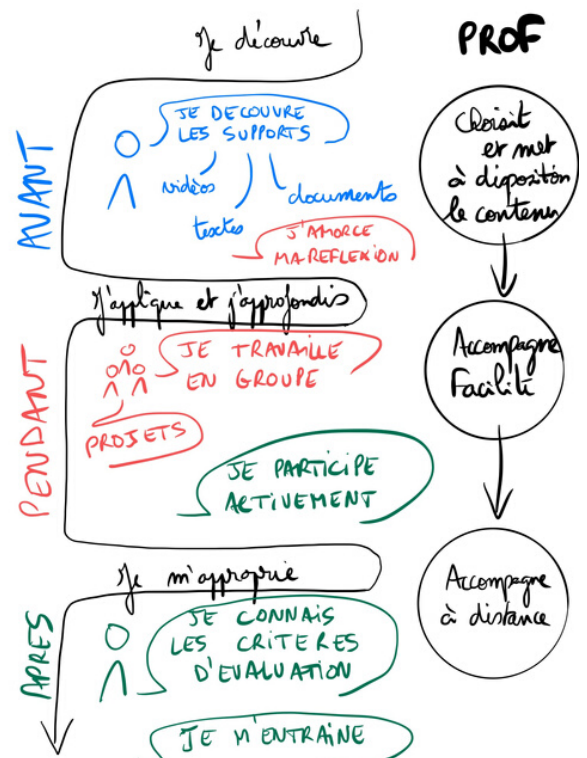 Je découvre
PROF
AVANT
JE DECOUVRE
LES SUPPORTS
vidéos
textes
documents
J'AMORCE
MA REFLEXION
Choisit
et met
à disposition
le contenu
J'applique et j'approfondis
PENDANT
JE TRAVAILLE
EN GROUPE
PROJETS
JE PARTICIPE
ACTIVEMENT
Accompagne
Facilite
Je m'approprie
APRES
JE CONNAIS
LES CRITERES
D'EVALUATION
JE M'ENTRAÎNE
Accompagne
à distance